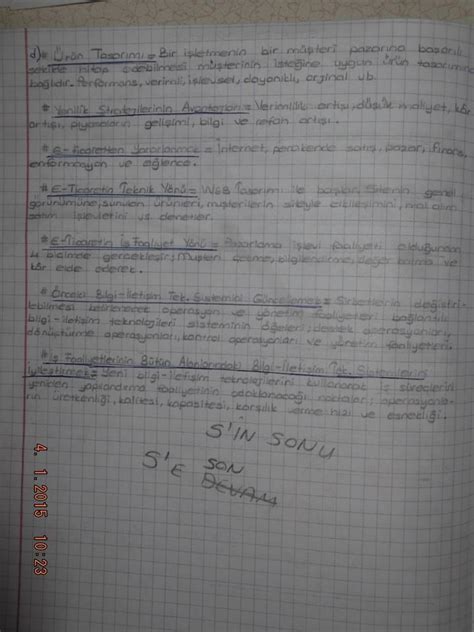 d)* Ürün Tasarımı = Bir işletmenin bir müşteri pazarına başarılı
şekilde hitap edebilmesi müşterinin isteğine uygun ürün tasarımına
bağlıdır. Performans, verimli, işlevsel, dayanıklı, orjinal vb.
* Yenilik Stratejilerinin Avantajları = Verimlilik artışı, düşük maliyet, kâr
artışı, piyasaların gelişimi, bilgi ve refah artışı.
* E-Ticaretten Yararlanmak = İnternet, perakende satış, pazar, finans,
enformasyon ve eğlence.
* E-Ticaretin Teknik Yönü = Web Tasarımı ile başlar. Sitenin genel
görünümüne, sunulan ürünleri, müşterilerin siteyle etkileşimini, mal alım
satım işlevlerini vs denetler.
* E-Ticaretin İş Faaliyet Yönü = Pazarlama işlevi faaliyeti olduğundan
4 biçimde gerçekleşir; Müşteri çekme, bilgilendirme, değer bulma ve
kâr elde ederek.
* Önceki Bilgi-İletişim Tek. Sistemini Güncellemek = Şirketlerin değiştiri-
lebilmesi istenecek operasyon ve yönetim faaliyetler bağlantılı
bilgi-iletişim teknolojileri sisteminin öğeleri; destek operasyonları,
dönüştürme operasyonları, kontrol operasyonları ve yönetim faaliyetleri.
* İş Faaliyetlerinin Bütün Alanlarındaki Bilgi-İletişim Tek. Sistemlerini
İyileştirmek = Yeni bilgi-iletişim teknolojilerini kullanarak iş süreçlerini
yeniden yapılandırma faaliyetinin odaklanacağı noktaları; operasyonla-
rın üretkenliği, kalitesi, kapasitesi, karşılık verme hızı ve esnekliği.
S'İN SONU
S'E SON
DEVAM
4. 1. 2015 10:23